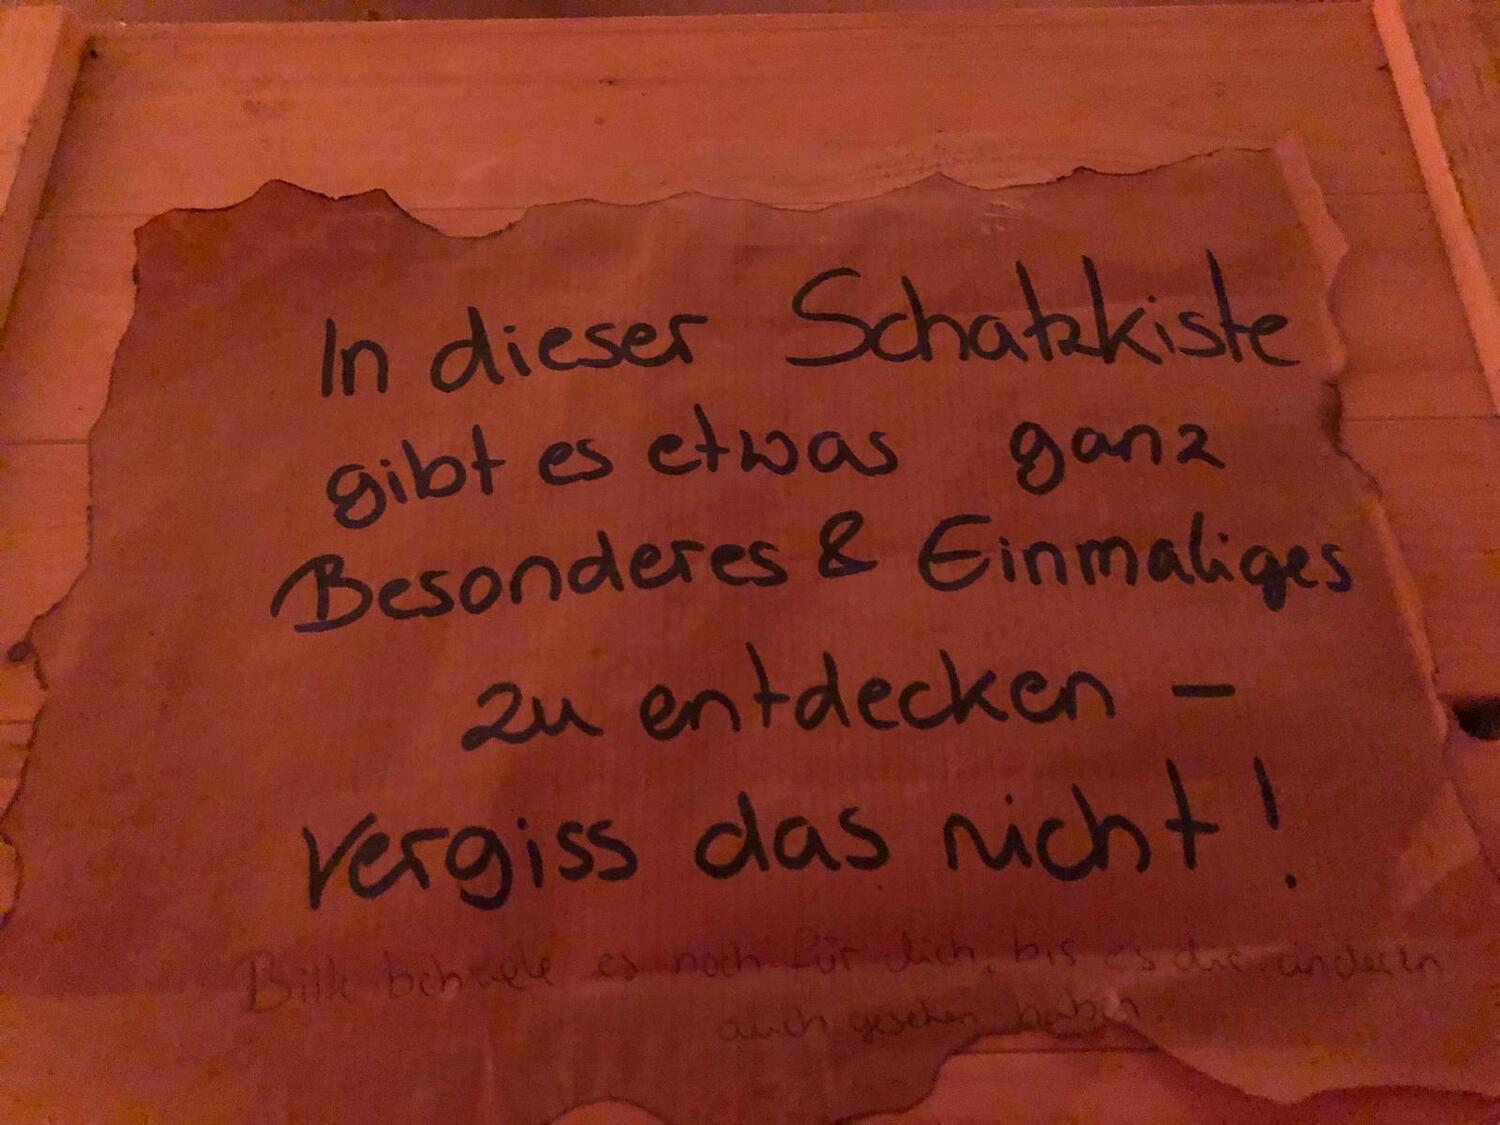 In dieser Schatzkiste
gibt es etwas ganz
Besonderes & Einmaliges
zu entdecken –
vergiss das nicht!
Bitte behalte es noch für dich, bis es die anderen
auch gesehen haben.